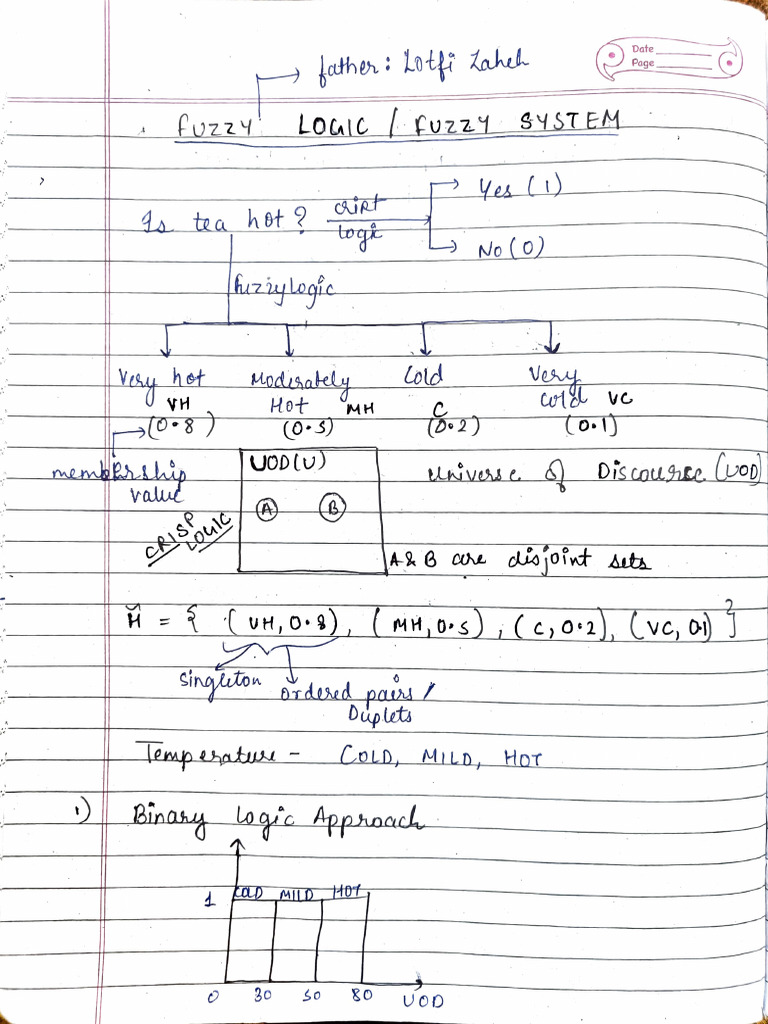 Date
Page
father: Lotfi Zaheh
FUZZY LOGIC / FUZZY SYSTEM
Is tea hot?
cript
logic
Yes (1)
No (0)
fuzzylogic
Very hot Moderately Cold Very
VH Hot MH C cold VC
(0.8) (0.5) (0.2) (0.1)
membership
value
UOD(U)
Universe of Discourse (UOD)
A B
CRISP
LOGIC
A & B are disjoint sets
H̃ = { (VH, 0.8), (MH, 0.5), (C, 0.2), (VC, 0.1) }
Singleton
ordered pairs /
Duplets
Temperature - COLD, MILD, HOT
1) Binary Logic Approach
1 COLD MILD HOT
0 30 50 80 UOD